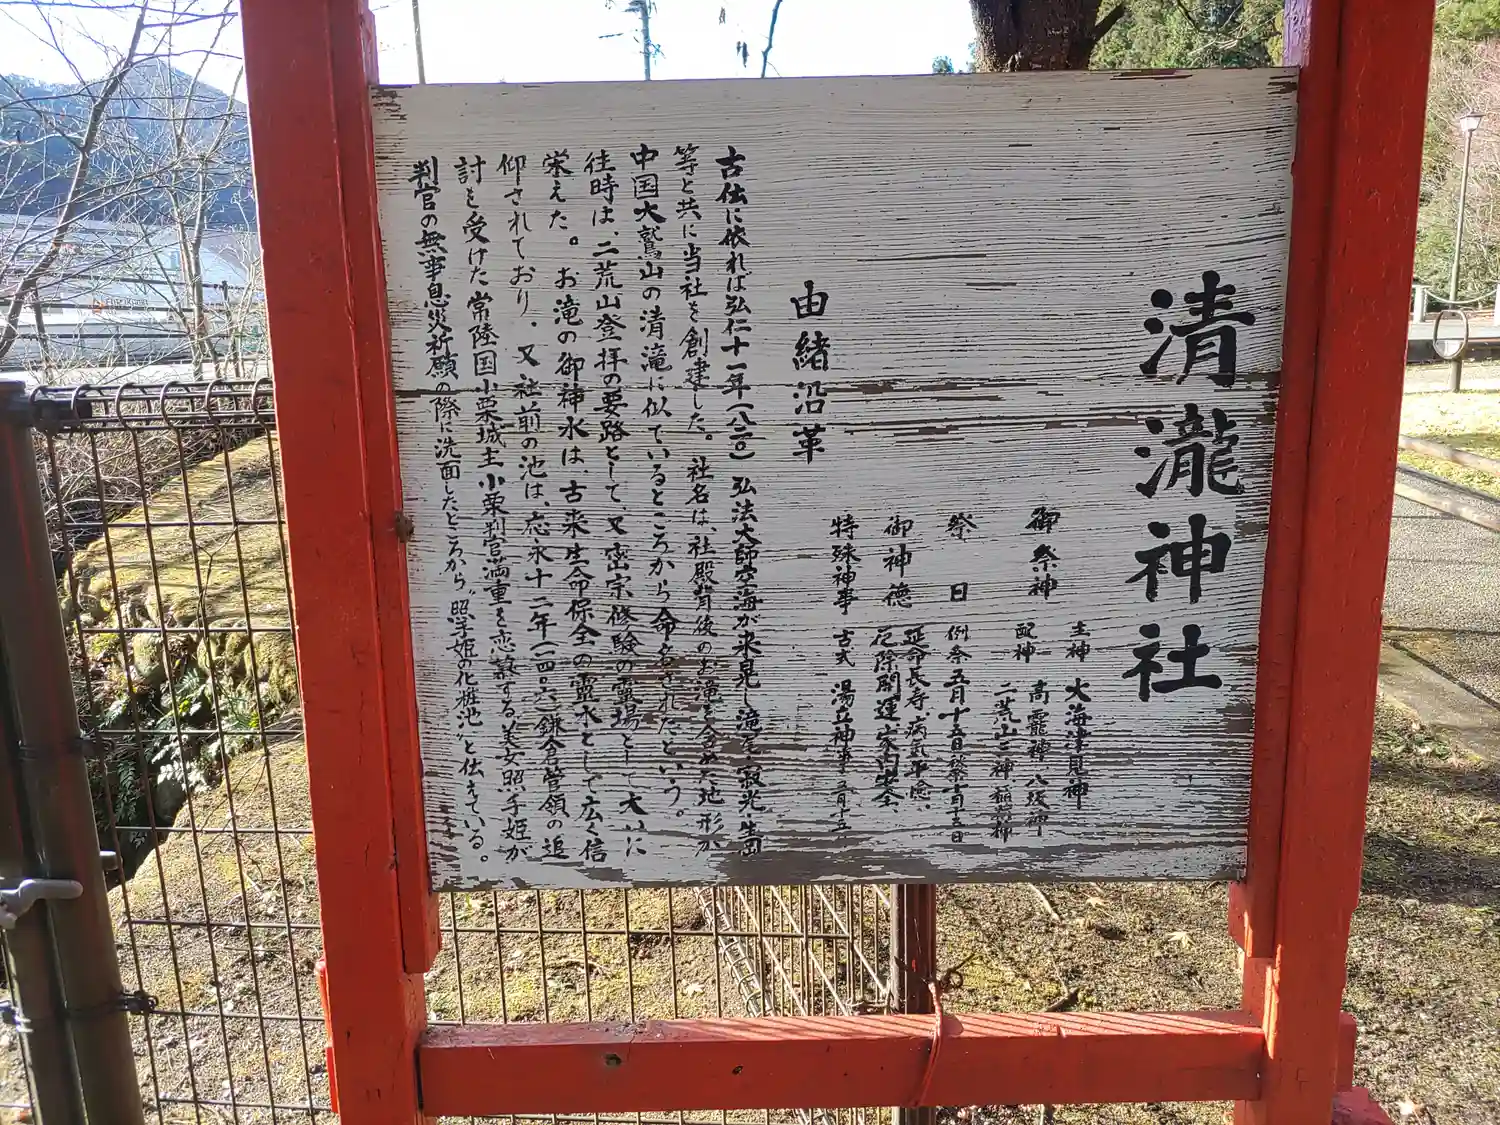 清瀧神社
御祭神
主神 大海津見神
配神 高龗神 八坂神
二荒山三神 稲荷神
祭日 例祭五月十五日 十月十三日
御神徳 延命長寿、病気平癒、
厄除開運、家内安全、
特殊神事 古式 湯立神事 三月十五
由緒沿革
古伝に依れば弘仁十一年(八二〇)弘法大師空海が来晃し滝尾・寂光・生岡
等と共に当社を創建した。社名は、社殿背後のお滝を含めた地形が
中国大鷲山の清滝に似ているところから命名されたという。
往時は、二荒山登拝の要路として、又密宗修験の霊場として大いに
栄えた。お滝の御神水は、古来生命保全の霊水として広く信
仰されており、又社前の池は、応永十二年(一四〇六)鎌倉管領の追
討を受けた常陸国小栗城主小栗判官満重を恋慕する美女照手姫が
判官の無事息災祈願の際に洗面したところから〝照手姫の化粧池〟と伝えている。